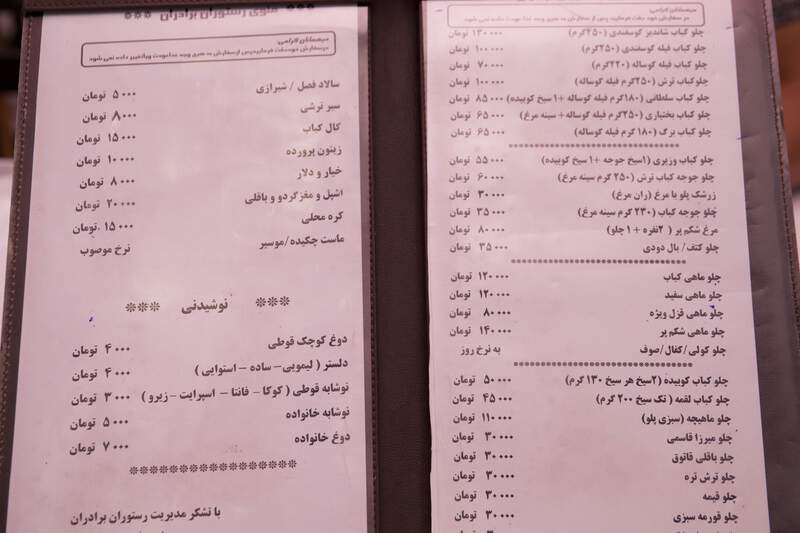 میهمانان گرامی:
در سفارش خود دقت فرمایید پس از سفارش به هیچ وجه غذا عودت و یا تغییر داده نمی شود
چلو کباب شاندیز گوسفندی (۲۵۰گرم) ۱۳۰۰۰۰ تومان
چلو کباب فیله گوسفندی (۲۵۰گرم) ۱۰۰۰۰۰ تومان
چلو کباب فیله گوساله (۲۲۰گرم) ۷۰۰۰۰ تومان
چلو کباب ترش (۲۵۰گرم فیله گوساله) ۱۰۰۰۰۰ تومان
چلو کباب سلطانی (۱۸۰گرم فیله گوساله +۱ سیخ کوبیده) ۸۵۰۰۰ تومان
چلو کباب بختیاری (۲۵۰گرم فیله گوساله+ سینه مرغ) ۶۵۰۰۰ تومان
چلو کباب برگ (۱۸۰ گرم فیله گوساله) ۶۵۰۰۰ تومان
چلو کباب وزیری (۱سیخ جوجه +۱ سیخ کوبیده) ۵۵۰۰۰ تومان
چلو جوجه کباب ترش (۲۵۰ گرم سینه مرغ) ۶۰۰۰۰ تومان
زرشک پلو با مرغ (ران مرغ) ۳۰۰۰۰ تومان
چلو جوجه کباب (۲۳۰ گرم سینه مرغ) ۳۵۰۰۰ تومان
مرغ شکم پر ( ۲نفره +۱ چلو) ۸۰۰۰۰ تومان
چلو کتف/ بال دودی ۳۵۰۰۰ تومان
چلو ماهی کباب ۱۲۰۰۰۰ تومان
چلو ماهی سفید ۱۲۰۰۰۰ تومان
چلو ماهی قزل ویژه ۸۰۰۰۰ تومان
چلو ماهی شکم پر ۱۴۰۰۰۰ تومان
چلو کولی/کفال/صوف به نرخ روز
چلو کباب کوبیده (۲سیخ هر سیخ ۱۳۰ گرم) ۵۰۰۰۰ تومان
چلو کباب لقمه ( تک سیخ ۲۰۰ گرم) ۴۵۰۰۰ تومان
چلو ماهیچه (سبزی پلو) ۱۱۰۰۰۰ تومان
چلو میرزا قاسمی ۳۰۰۰۰ تومان
چلو باقلی قاتوق ۳۰۰۰۰ تومان
چلو ترش تره ۳۰۰۰۰ تومان
چلو قیمه ۳۰۰۰۰ تومان
چلو قورمه سبزی ۳۰۰۰۰ تومان
*** منوی رستوران برادران ***
میهمانان گرامی:
در سفارش خود دقت فرمایید پس از سفارش به هیچ وجه غذا عودت و یا تغییر داده نمی شود
سالاد فصل / شیرازی ۵۰۰۰ تومان
سیر ترشی ۸۰۰۰ تومان
کال کباب ۱۵۰۰۰ تومان
زیتون پرورده ۱۰۰۰۰ تومان
خیار و دلار ۸۰۰۰ تومان
اشپل و مغزگردو و باقلی ۲۰۰۰۰ تومان
کره محلی ۱۵۰۰۰ تومان
ماست چکیده/موسیر نرخ موصوب
*** نوشیدنی ***
دوغ کوچک قوطی ۴۰۰۰ تومان
دلستر ( لیمویی – ساده – استوایی ) ۴۰۰۰ تومان
نوشابه قوطی ( کوکا – فانتا – اسپرایت – زیرو ) ۳۰۰۰ تومان
نوشابه خانواده ۵۰۰۰ تومان
دوغ خانواده ۷۰۰۰ تومان
با تشکر مدیریت رستوران برادران